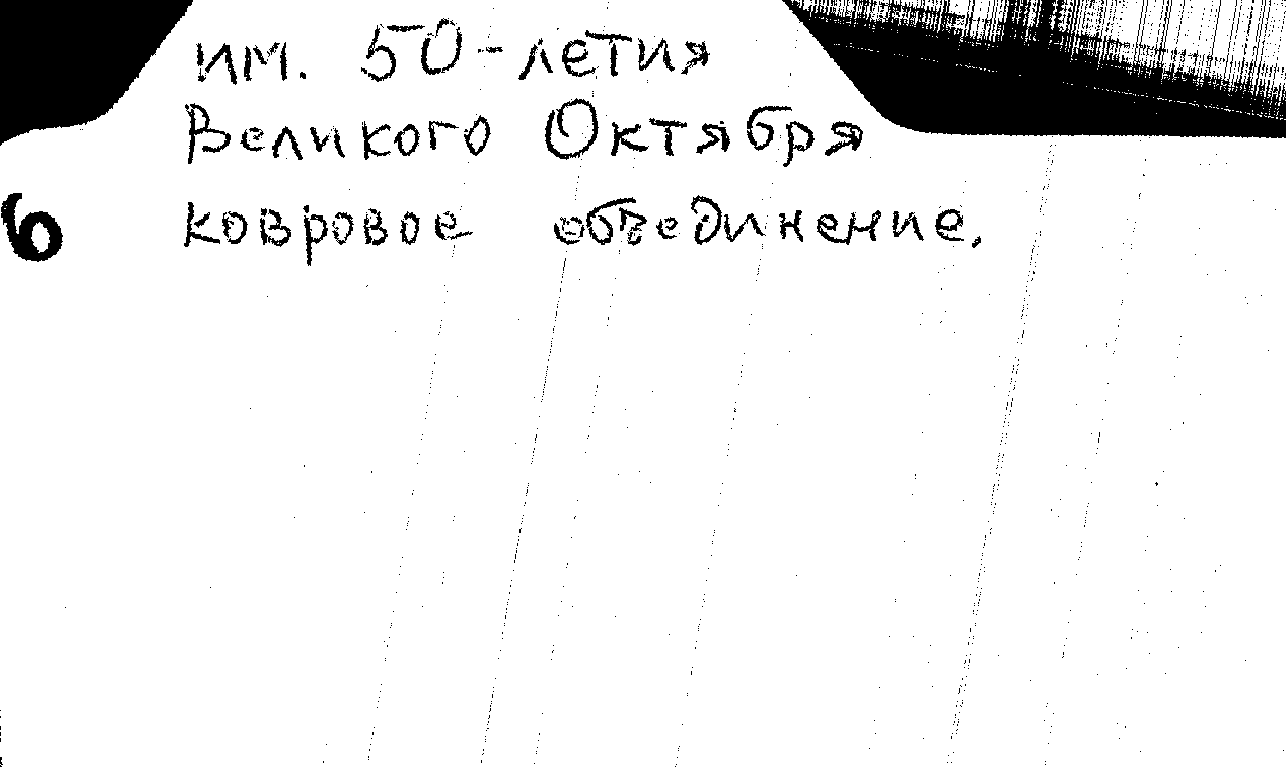 им. 50-летия
Великого Октября
6 ковровое объединение.